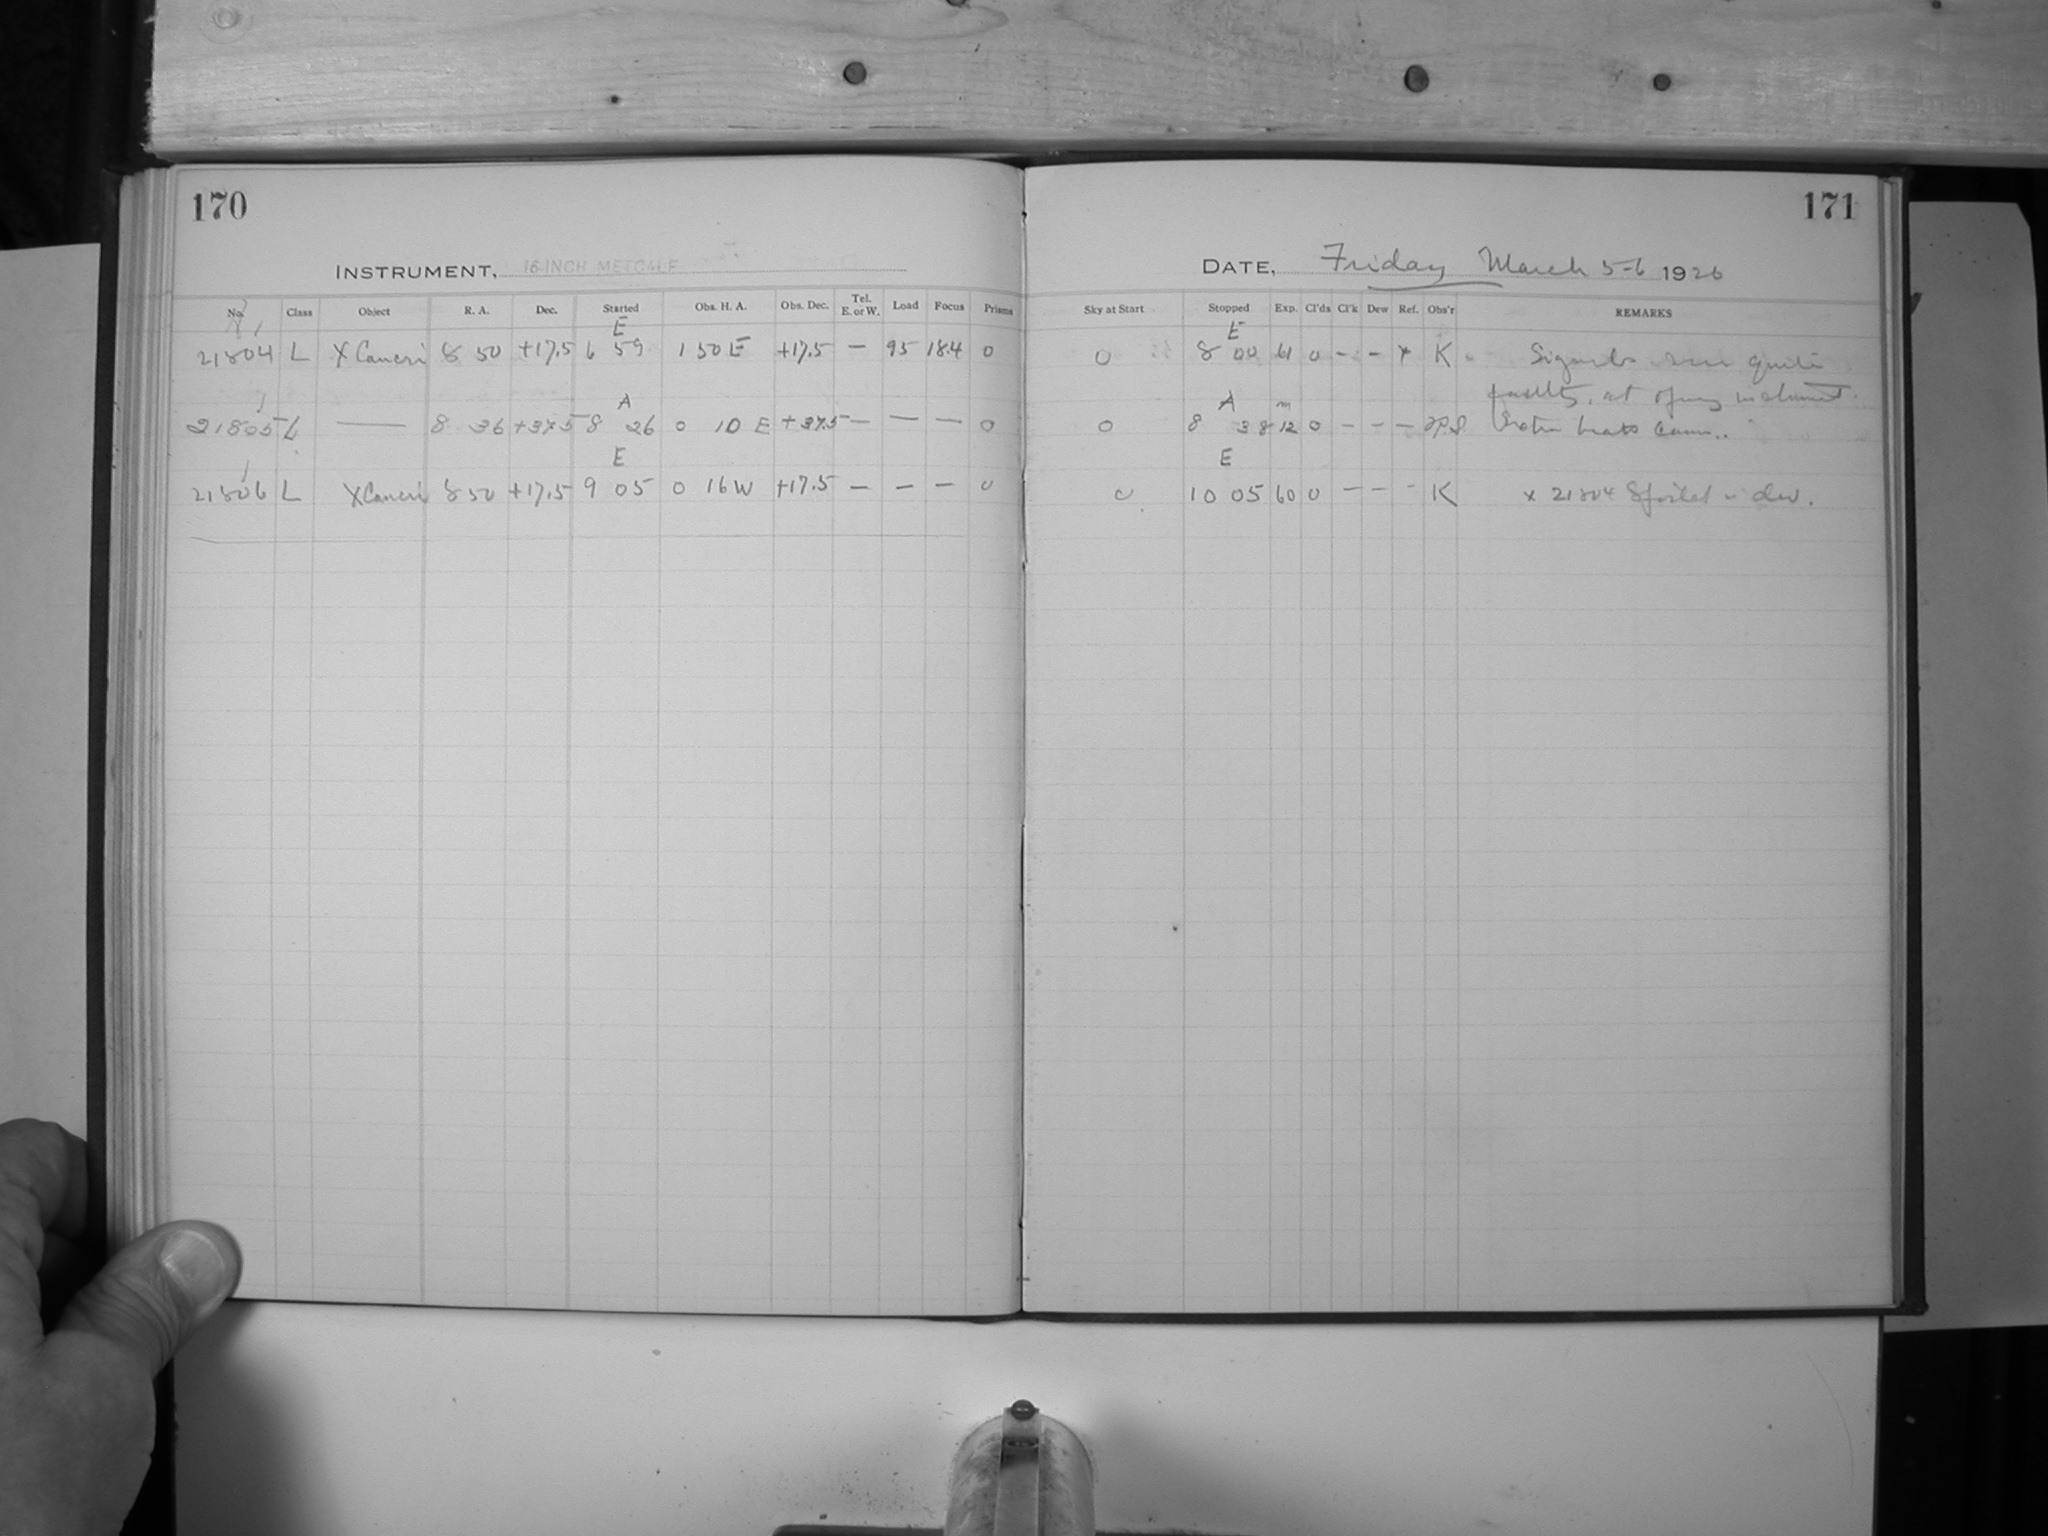 170
INSTRUMENT, 16-INCH METCALF
No. Class Object R. A. Dec. Started Obs. H. A. Obs. Dec. Tel. E. or W. Load Focus Prisms
E
21804 L X Cancri 8 50 +17.5 6 59 1 50 E +17.5 — 95 18.4 0
A
21805 L — 8 36 +37.5 8 26 0 10 E +37.5 — — — 0
E
21806 L X Cancri 8 50 +17.5 9 05 0 16 W +17.5 — — — 0
171
DATE, Friday March 5-6 1926
Sky at Start Stopped Exp. Cl'ds Cl'k Dew Ref. Obs'r REMARKS
E
0 8 00 61 0 - - x K
quite
A m
0 8 38 12 0 - - -
E
0 10 05 60 0 - - - K x 21804 Spoiled dew.